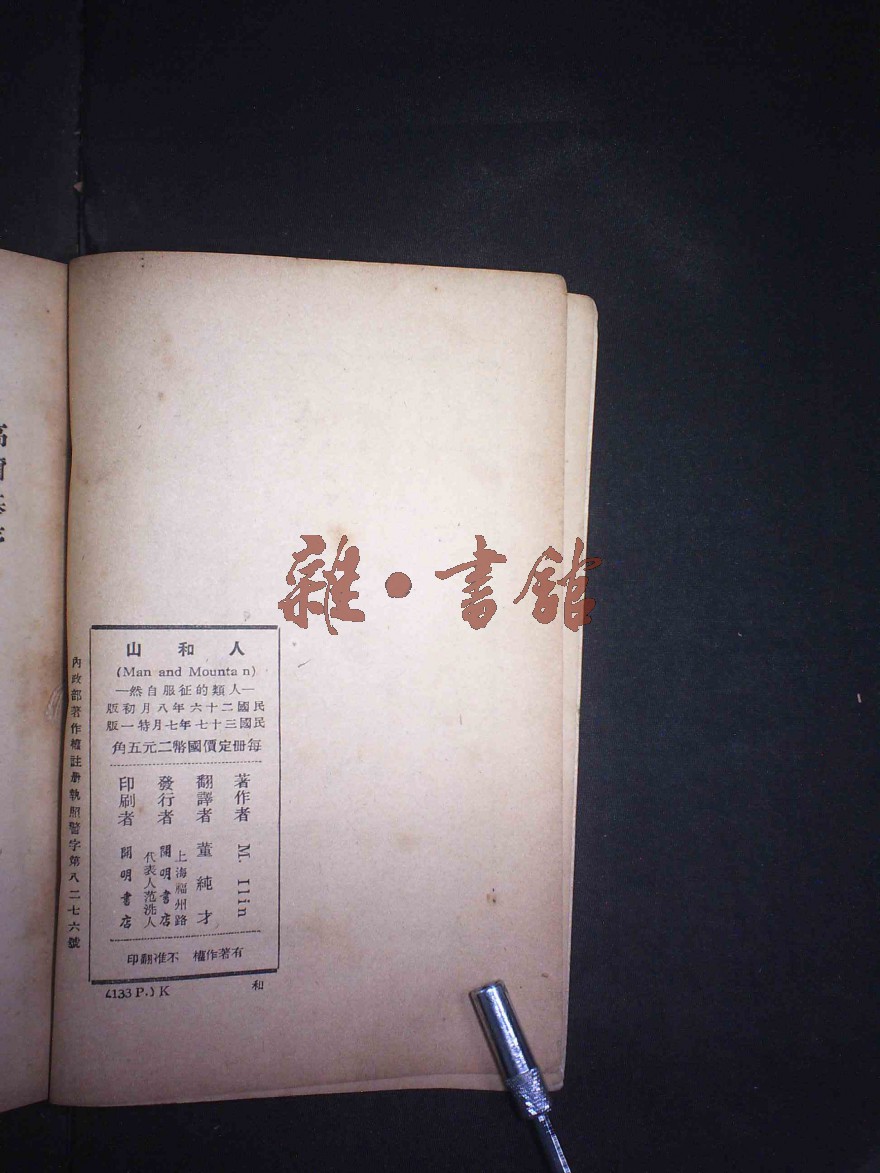 雜·書館
人和山
(Man and Mounta n)
—人類的征服自然—
民國二十六年八月初版
民國三十七年七月特一版
每冊定價國幣二元五角
著作者 M. Ilin
翻譯者 董純才
發行者 開明書店
上海福州路
代表人范洗人
印刷者 開明書店
有著作權 不准翻印
內政部著作權註册執照警字第八二七六號
(133 P.) K
和